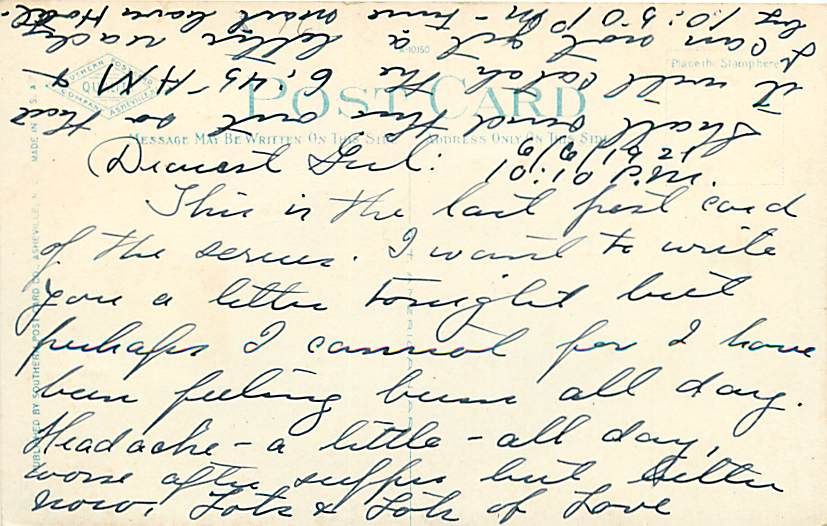 A-10150
Place the Stamp here
SOUTHERN POST CARD
COMPANY ASHEVILLE
POST CARD
MESSAGE MAY BE WRITTEN ON THIS SIDE
ADDRESS ONLY ON THIS SIDE
10:10 P.M.
Dearest Girl:
This is the last post card
of the series. I want to write
you a letter tonight but
perhaps I cannot for I have
been feeling bum all day.
Headache - a little - all day,
worse after supper but better
now. Lots & Lots of Love
Shall send this out so that
it will catch the 6:45 AM &
I can not get a letter ready
by 10:50 PM - time mail leaves Hotel.
PUBLISHED BY SOUTHERN POST CARD CO., ASHEVILLE, N. C.
MADE IN U. S. A.